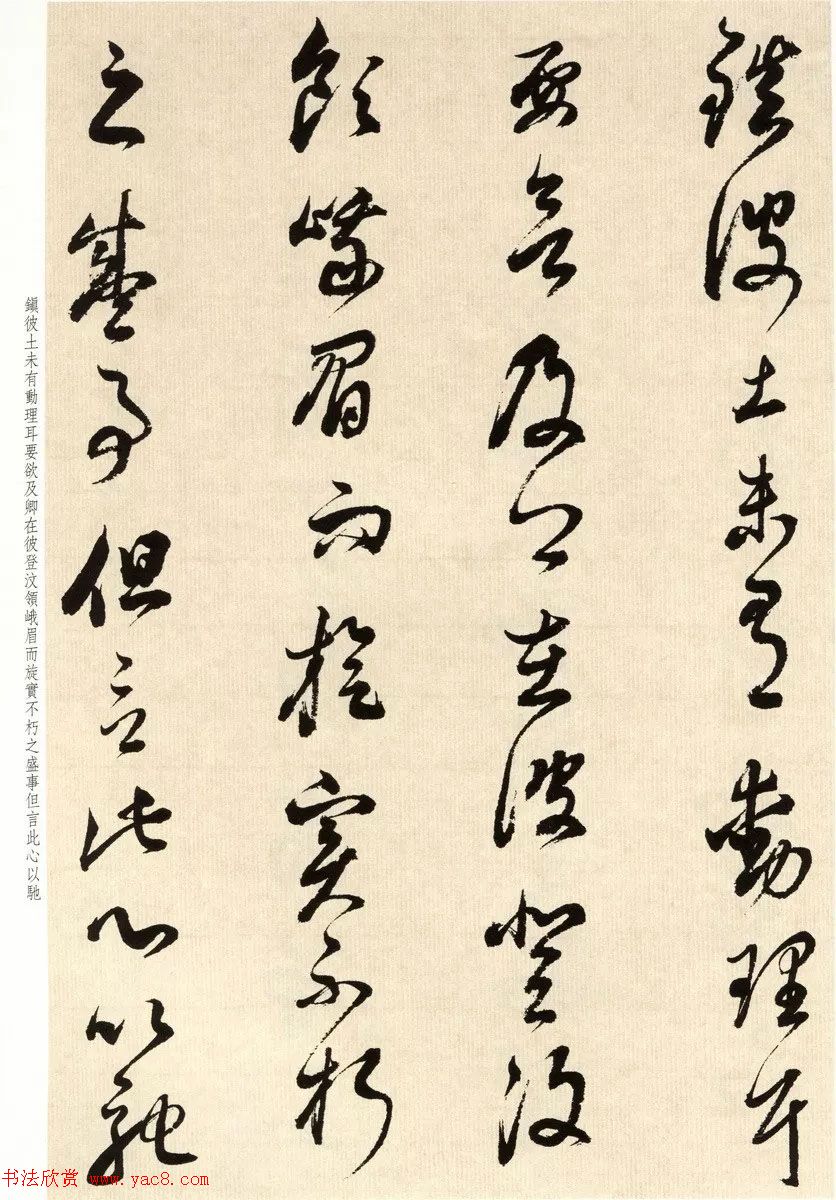 鎮彼土未有動理耳
要欲及卿在彼登汶
領峨眉而旋實不朽
之盛事但言此心以馳
鎮彼土未有動理耳要欲及卿在彼登汶領峨眉而旋實不朽之盛事但言此心以馳
书法欣赏 www.yac8.com